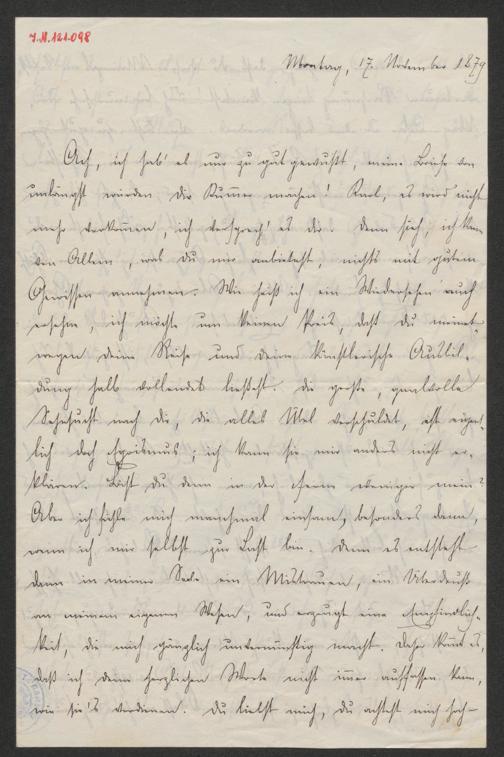 J.N.121.098
Montag, 17. November 1879
Ach, ich hab' es nur zu gut gewußt, meine Briefe von
unlängst würden Dir Kummer machen! Karl, es wird nicht
mehr vorkommen, ich versprech' es Dir. Denn sieh, ich kann
von Allem, was Du mir anbietest, nichts mit gutem
Gewissen annehmen. Wie heiß ich ein Wiedersehen auch
ersehne, ich möchte um keinen Preis, daß Du meinet-
wegen deine Reise und deine künstlerische Ausbil-
dung halb vollendet ließest. Die große, qualvolle
Sehnsucht nach dir, die alles Übel verschuldet, ist eigent-
lich doch Egoismus; ich kann sie mir anders nicht er-
klären. Bist Du denn in der Ferne weniger mein?
Aber ich fühle mich manchmal einsam, besonders dann,
wenn ich mir selbst zur Last bin. Denn es entsteht
dann in meiner Seele ein Mistrauen, ein Überdruß
an meinem eigenen Wesen, und erzeugt eine Empfindlich-
keit, die mich gänzlich unvernünftig macht. Daher kommt es,
daß ich Deine herzlichen Worte nicht immer auffassen kann,
wie sie's verdienen. Du liebst mich, Du achtest mich hoch